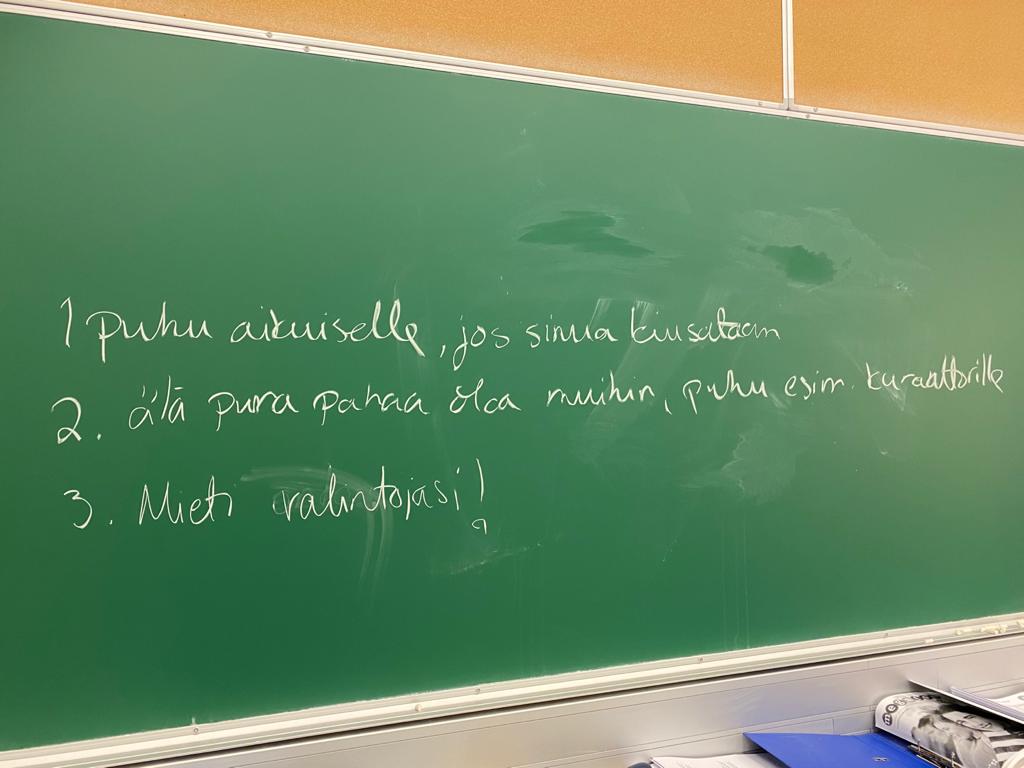 1 puhu aikuiselle, jos sinua kiusataan
2. älä pura pahaa oloa muihin, puhu esim. kuraattorille
3. Mieti valintojasi!